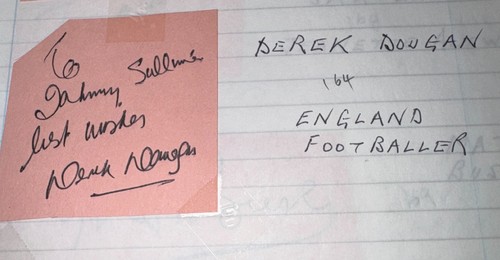 To
Johnny Sullivan
best wishes
Derek Dougan
DEREK DOUGAN
'64
ENGLAND
FOOTBALLER